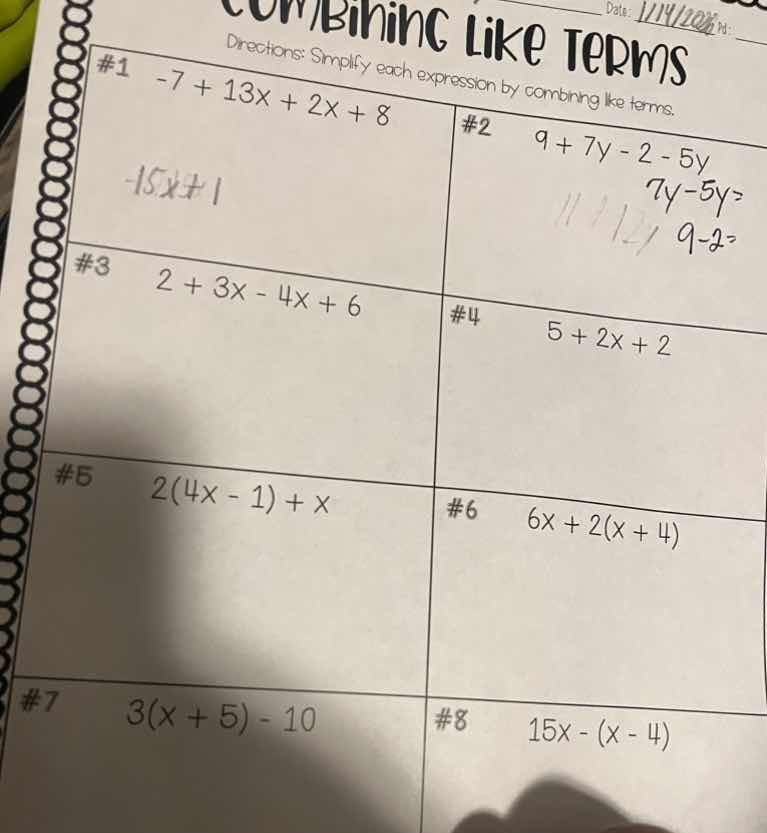 Date: 1/14/2026 Pd:
Combining Like Terms
Directions: Simplify each expression by combining like terms.
#1 -7 + 13x + 2x + 8
-15x + 1
#2 9 + 7y - 2 - 5y
7y-5y=
9-2=
#3 2 + 3x - 4x + 6
#4 5 + 2x + 2
#5 2(4x - 1) + x
#6 6x + 2(x + 4)
#7 3(x + 5) - 10
#8 15x - (x - 4)